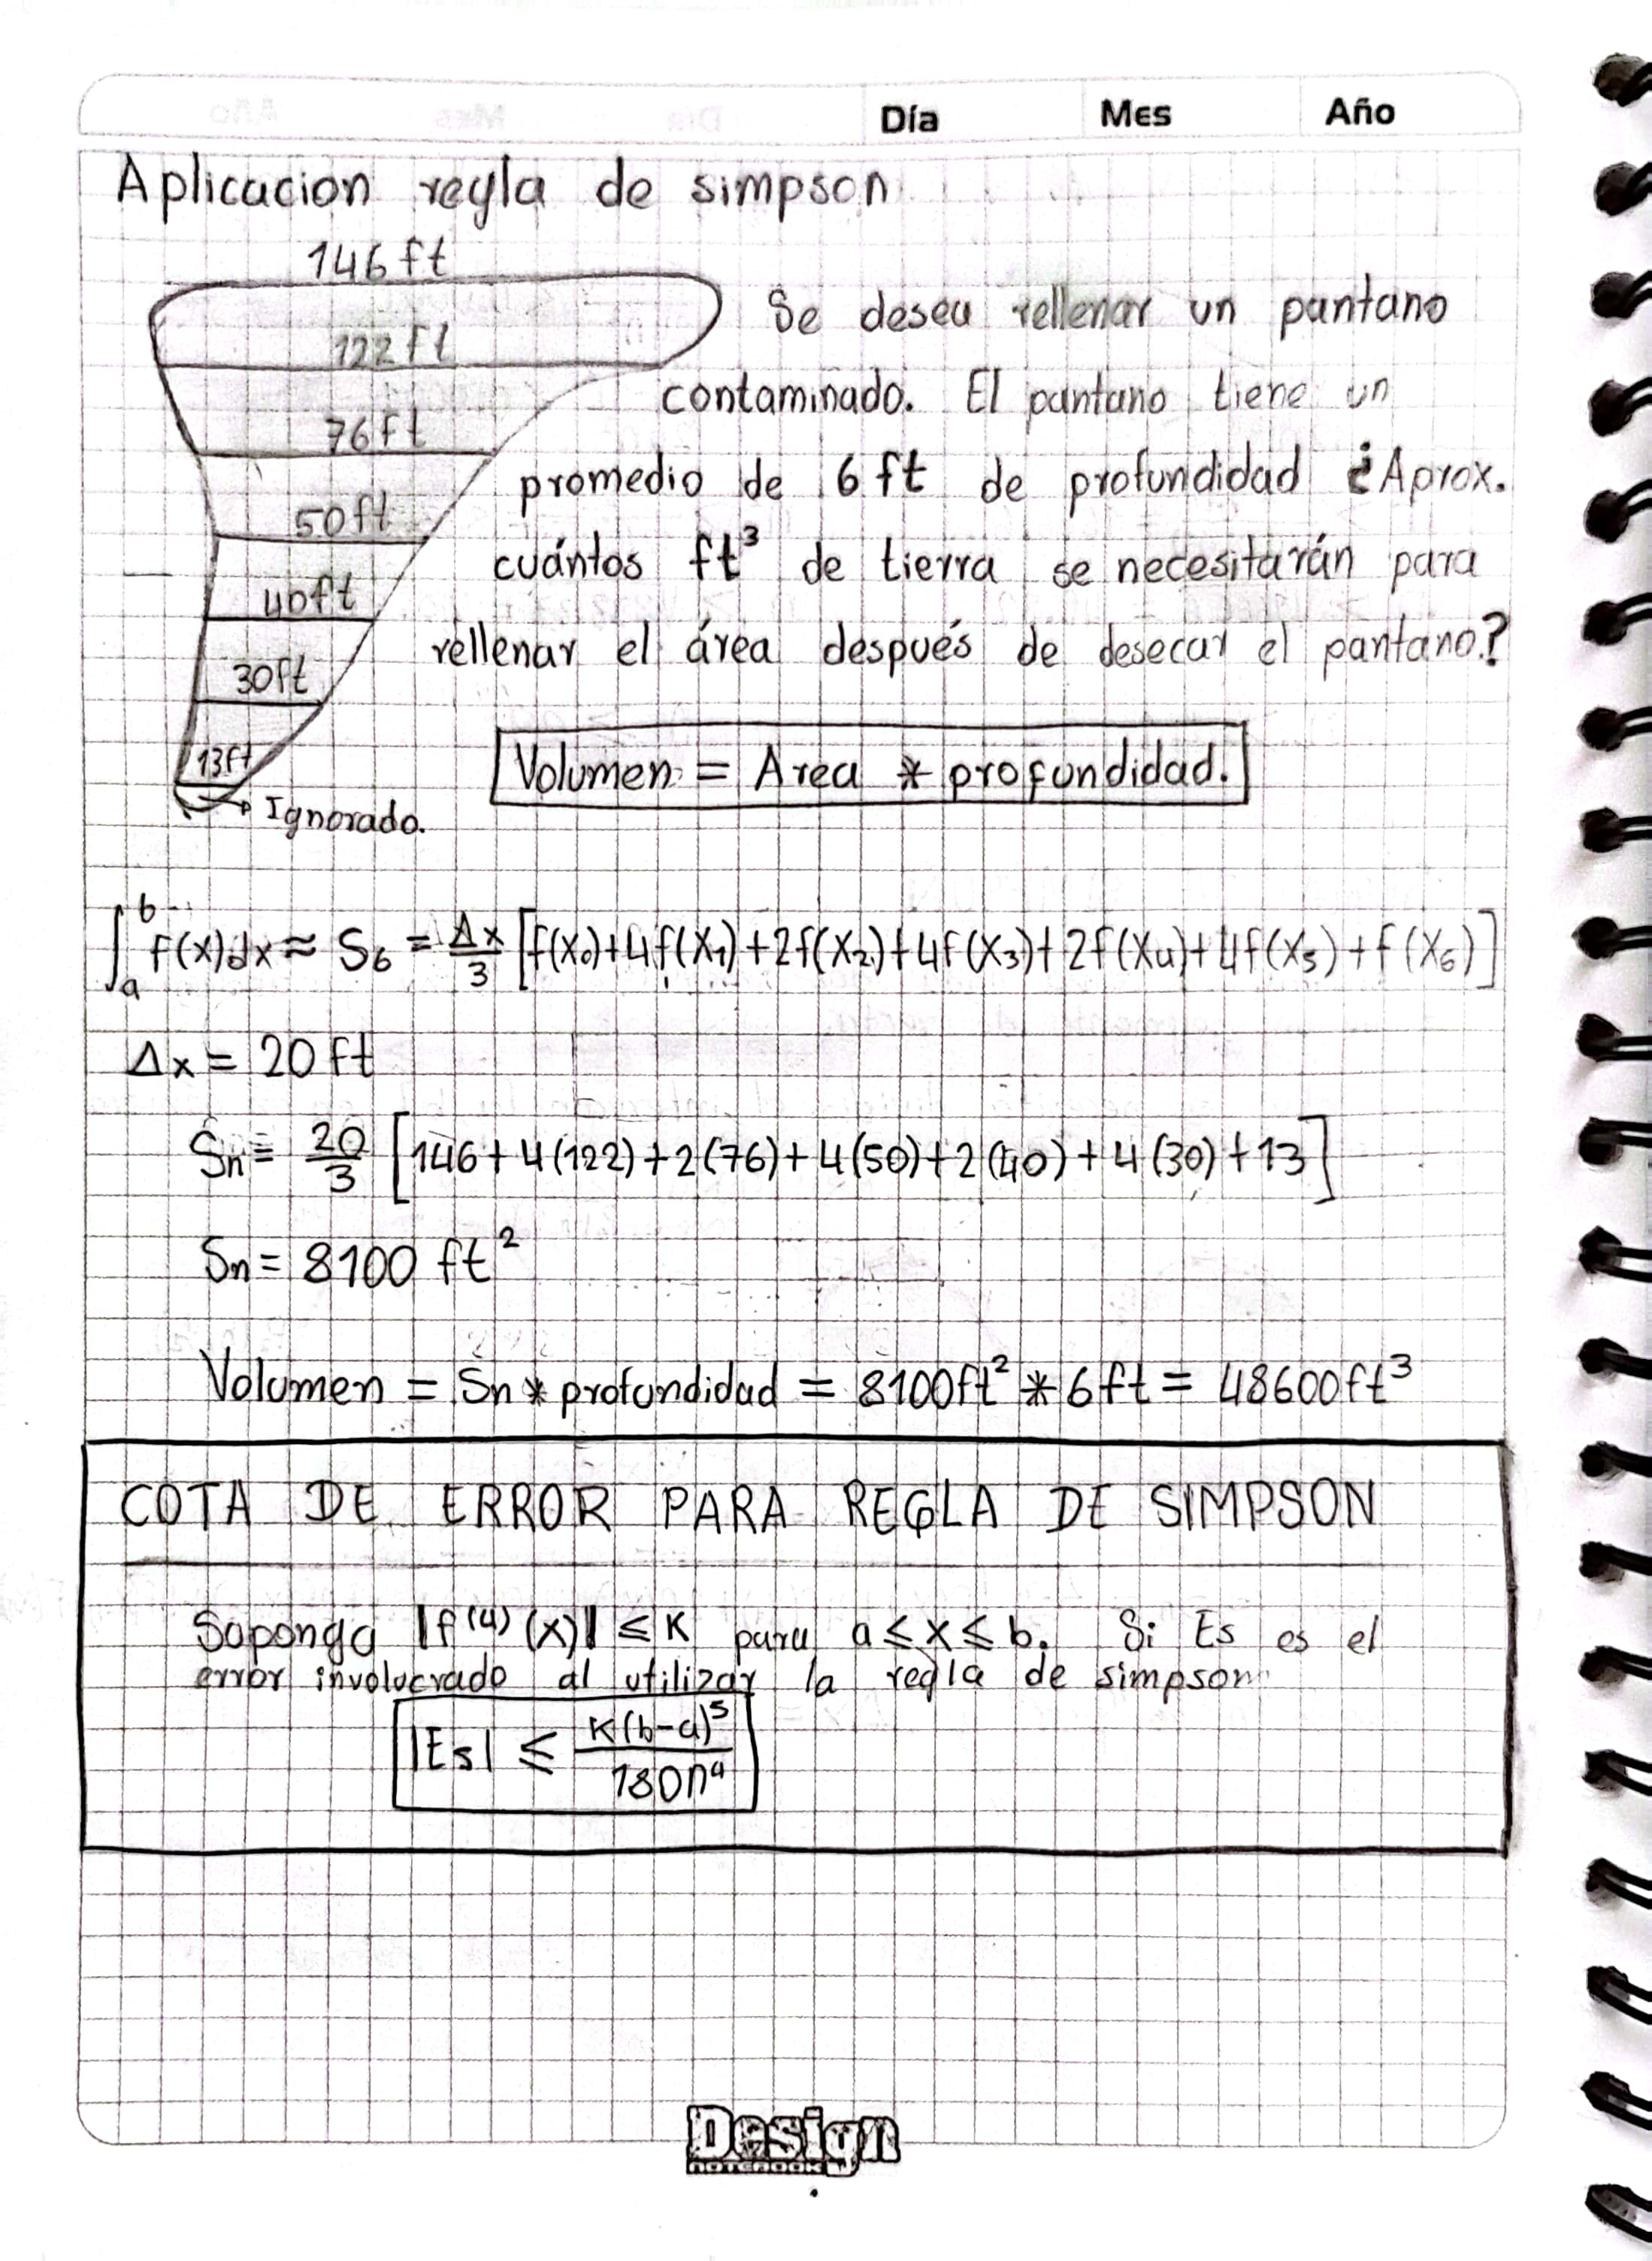 Día Mes Año
Aplicacion regla de simpson
146 ft
122 ft
76 ft
50 ft
40 ft
30 ft
13 ft
Ignorado.
Se desea rellenar un pantano
contaminado. El pantano tiene un
promedio de 6 ft de profundidad ¿Aprox.
cuántos ft³ de tierra se necesitarán para
rellenar el área después de desecar el pantano?
Volumen = Area * profundidad.
∫ₐᵇ f(x)dx ≈ S₆ = Δx/3 [f(x₀)+4f(x₁)+2f(x₂)+4f(x₃)+2f(x₄)+4f(x₅)+f(x₆)]
Δx = 20 ft
Sn = 20/3 [146+4(122)+2(76)+4(50)+2(40)+4(30)+13]
Sn = 8100 ft²
Volumen = Sn * profundidad = 8100ft² * 6ft = 48600ft³
COTA DE ERROR PARA REGLA DE SIMPSON
Suponga |f⁽⁴⁾(x)| ≤ K para a ≤ x ≤ b. Si Es es el
error involucrado al utilizar la regla de simpson
|Es| ≤ K(b-a)⁵/180n⁴
Design
NOTEBOOK